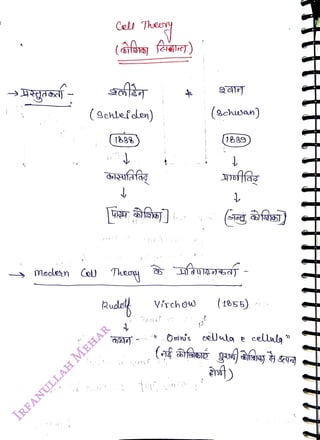 Cell Theory
(कोशिका सिद्धान्त)
→ प्रस्तुतकर्ता - श्लीडेन + श्वान
(Schleiden) (Schwan)
1838 1839
↓ ↓
वनस्पतिविद् प्राणीविद्
↓ ↓
[पादप कोशिका] (जन्तु कोशिका)
→ Modern Cell Theory के प्रतिपादनकर्ता -
Rudolf Virchow (1855)
↓
कथन - "Omnis cellula e cellula"
(नई कोशिकाएं पुरानी कोशिका से उत्पन्न
होगी)
IRFANULLAH MEHAR